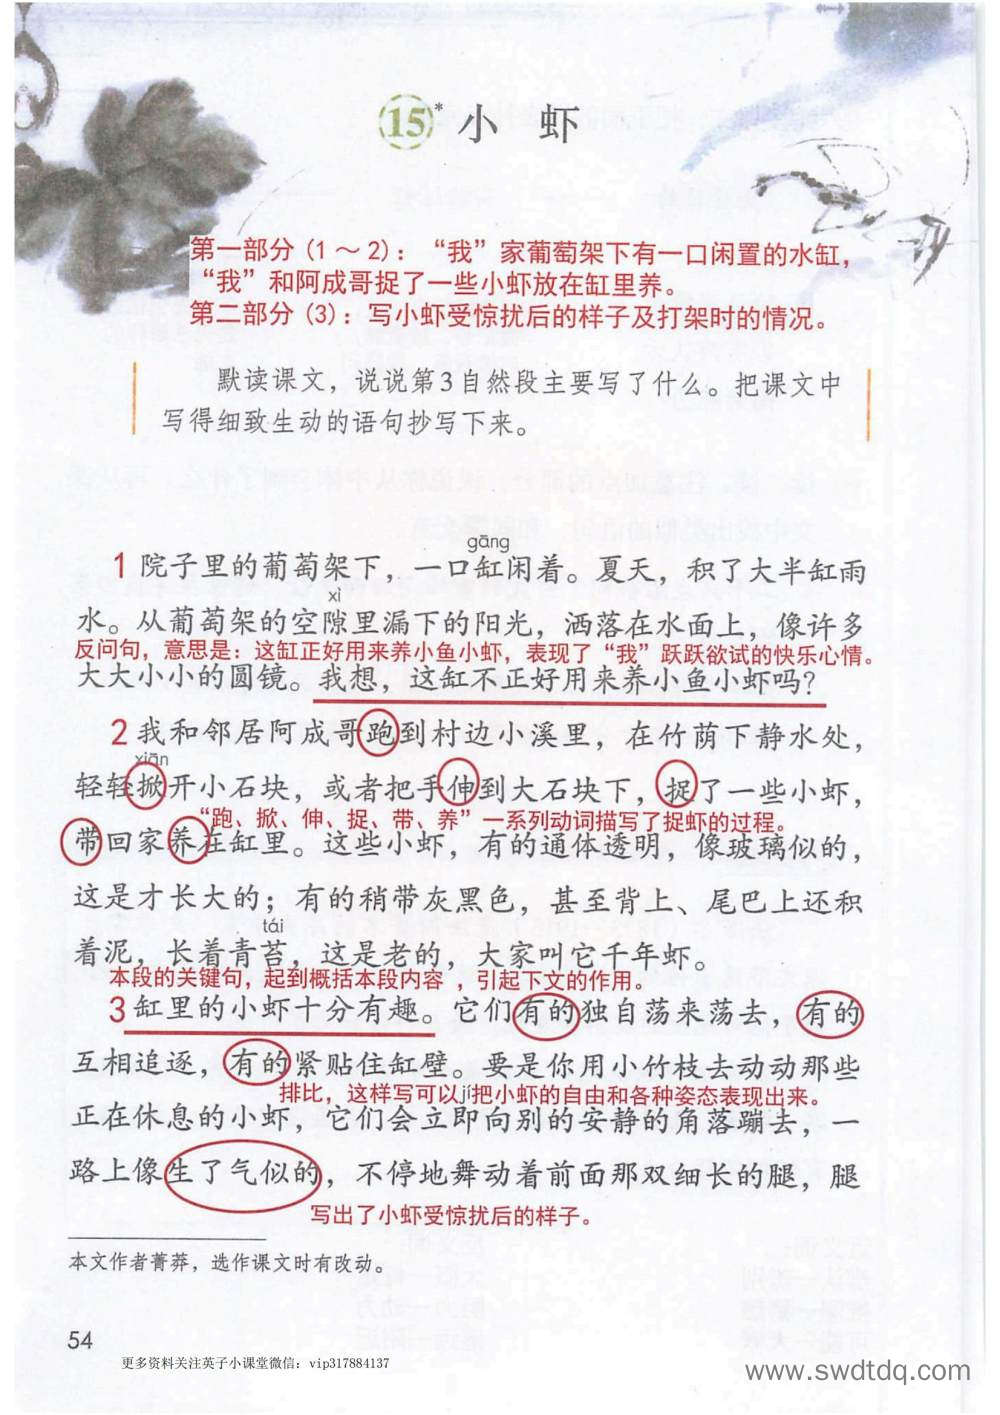 15* 小虾
第一部分(1～2)：“我”家葡萄架下有一口闲置的水缸，
“我”和阿成哥捉了一些小虾放在缸里养。
第二部分(3)：写小虾受惊扰后的样子及打架时的情况。
默读课文，说说第3自然段主要写了什么。把课文中
写得细致生动的语句抄写下来。
gāng
1 院子里的葡萄架下，一口缸闲着。夏天，积了大半缸雨
xì
水。从葡萄架的空隙里漏下的阳光，洒落在水面上，像许多
反问句，意思是：这缸正好用来养小鱼小虾，表现了“我”跃跃欲试的快乐心情。
大大小小的圆镜。我想，这缸不正好用来养小鱼小虾吗？
2 我和邻居阿成哥跑到村边小溪里，在竹荫下静水处，
xiān
轻轻掀开小石块，或者把手伸到大石块下，捉了一些小虾，
“跑、掀、伸、捉、带、养”一系列动词描写了捉虾的过程。
带回家养在缸里。这些小虾，有的通体透明，像玻璃似的，
这是才长大的；有的稍带灰黑色，甚至背上、尾巴上还积
tái
着泥，长着青苔，这是老的，大家叫它千年虾。
本段的关键句，起到概括本段内容，引起下文的作用。
3 缸里的小虾十分有趣。它们有的独自荡来荡去，有的
互相追逐，有的紧贴住缸壁。要是你用小竹枝去动动那些
排比，这样写可以jí把小虾的自由和各种姿态表现出来。
正在休息的小虾，它们会立即向别的安静的角落蹦去，一
路上像生了气似的，不停地舞动着前面那双细长的腿，腿
写出了小虾受惊扰后的样子。
本文作者菁莽，选作课文时有改动。
54
更多资料关注英子小课堂微信：vip317884137
www.swdtdq.com